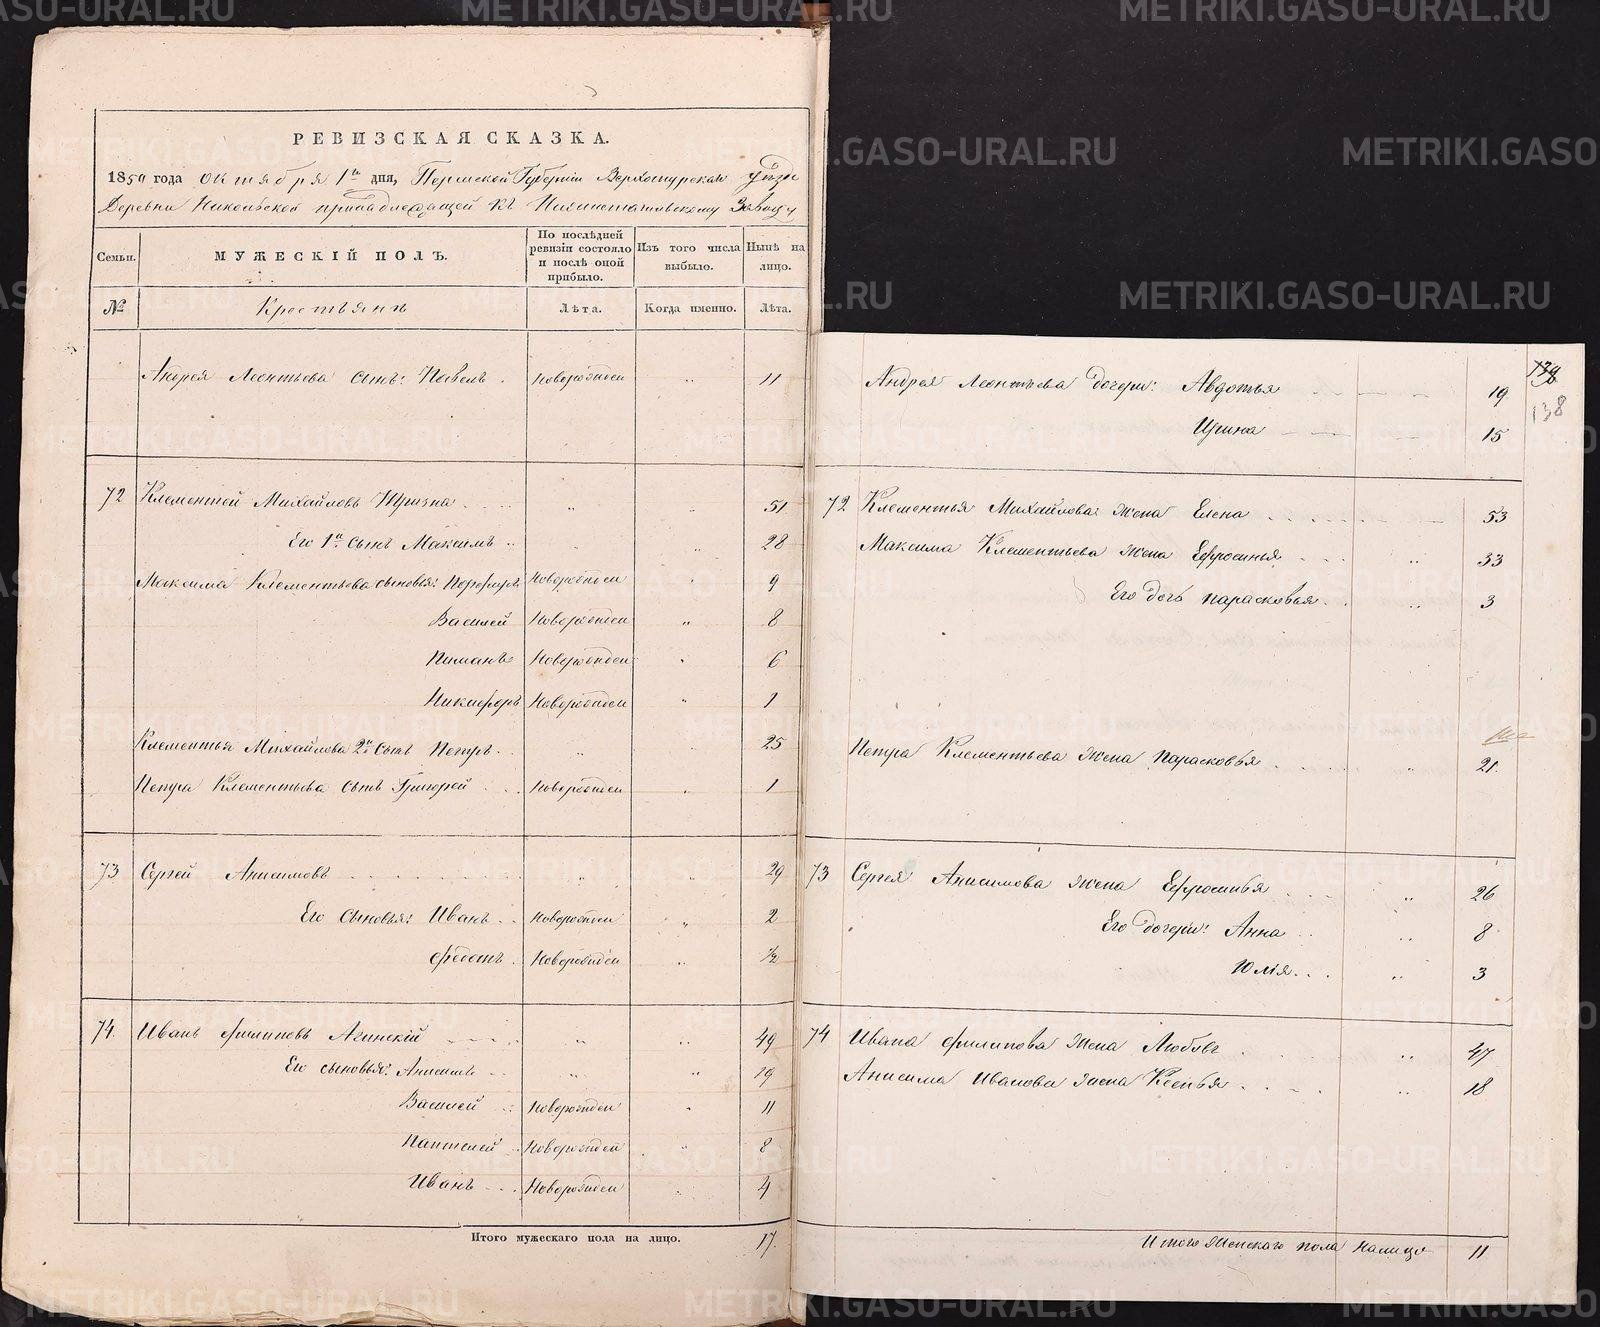 РЕВИЗСКАЯ СКАЗКА.
1850 года октября 1го дня, Пермской Губернии Верхотурскаго уезда
Деревни Никольской принадлежащей къ Заводу
Семьи.
МУЖЕСКІЙ ПОЛЪ.
По послѣдней ревизіи состояло и послѣ оной прибыло.
Изъ того числа выбыло.
Нынѣ на лицо.
№
Крестьянъ
Лѣта.
Когда именно.
Лѣта.
Андрея Леонтьева сынъ: Павелъ . новорожден „ 11
72 Клементей Михайловъ „ „ 51
Его 1й сынъ Максимъ „ „ 28
Максима Клементьева сыновья: Порфиръ Новорожден „ 9
Василей Новорожден „ 8
Пиманъ Новорожден „ 6
Никифоръ Новорожден „ 1
Клементья Михайлова 2й сынъ Петръ „ „ 25
Петра Клементьева сынъ Григорей Новорожден „ 1
73 Сергей Анисимовъ „ „ 29
Его сыновья: Иванъ Новорожден „ 2
Федотъ Новорожден „ ½
74. Иванъ Филиповъ Агинскій „ „ 49
Его сыновья: Анисимъ „ „ 19
Василей Новорожден „ 11
Пантелей Новорожден „ 8
Иванъ Новорожден „ 4
Итого мужескаго пола на лицо. 17.
138
Андрея Леонтьева дочери: Авдотья 19
Ирина 15
72 Клементья Михайлова жена Елена 53
Максима Клементьева жена Ефросинья „ 33
Его дочь Парасковья „ 3
Петра Клементьева жена Парасковья „ 21.
73 Сергея Анисимова жена Ефросинья „ 26
Его дочери: Анна „ 8
Юлія „ 3
74 Ивана Филипова жена Любовь „ 47
Анисима Иванова жена Ксенья „ 18
Итого Женскаго пола налицо 11
METRIKI.GASO-URAL.RU